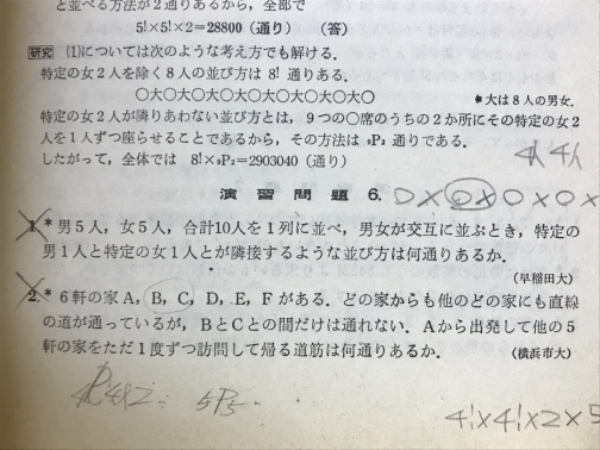 と並べる方法が2通りあるから，全部で
5!×5!×2＝28800（通り）　（答）
研究 (1)については次のような考え方でも解ける．
特定の女2人を除く8人の並び方は 8! 通りある．
○大○大○大○大○大○大○大○大○
大は8人の男女．
特定の女2人が隣りあわない並び方とは，9つの○席のうちの2か所にその特定の女2
人を1人ずつ座らせることであるから，その方法は ₉P₂ 通りである．
したがって，全体では　8!×₉P₂＝2903040（通り）
4人 4人
演習問題 6.
○×○×○×○×
1.* 男5人，女5人，合計10人を1列に並べ，男女が交互に並ぶとき，特定の
男1人と特定の女1人とが隣接するような並び方は何通りあるか．
（早稲田大）
2.* 6軒の家A，B，C，D，E，Fがある．どの家からも他のどの家にも直線
の道が通っているが，BとCとの間だけは通れない．Aから出発して他の5
軒の家をただ1度ずつ訪問して帰る道筋は何通りあるか．
（横浜市大）
₅P₅
4!×4!×2×5